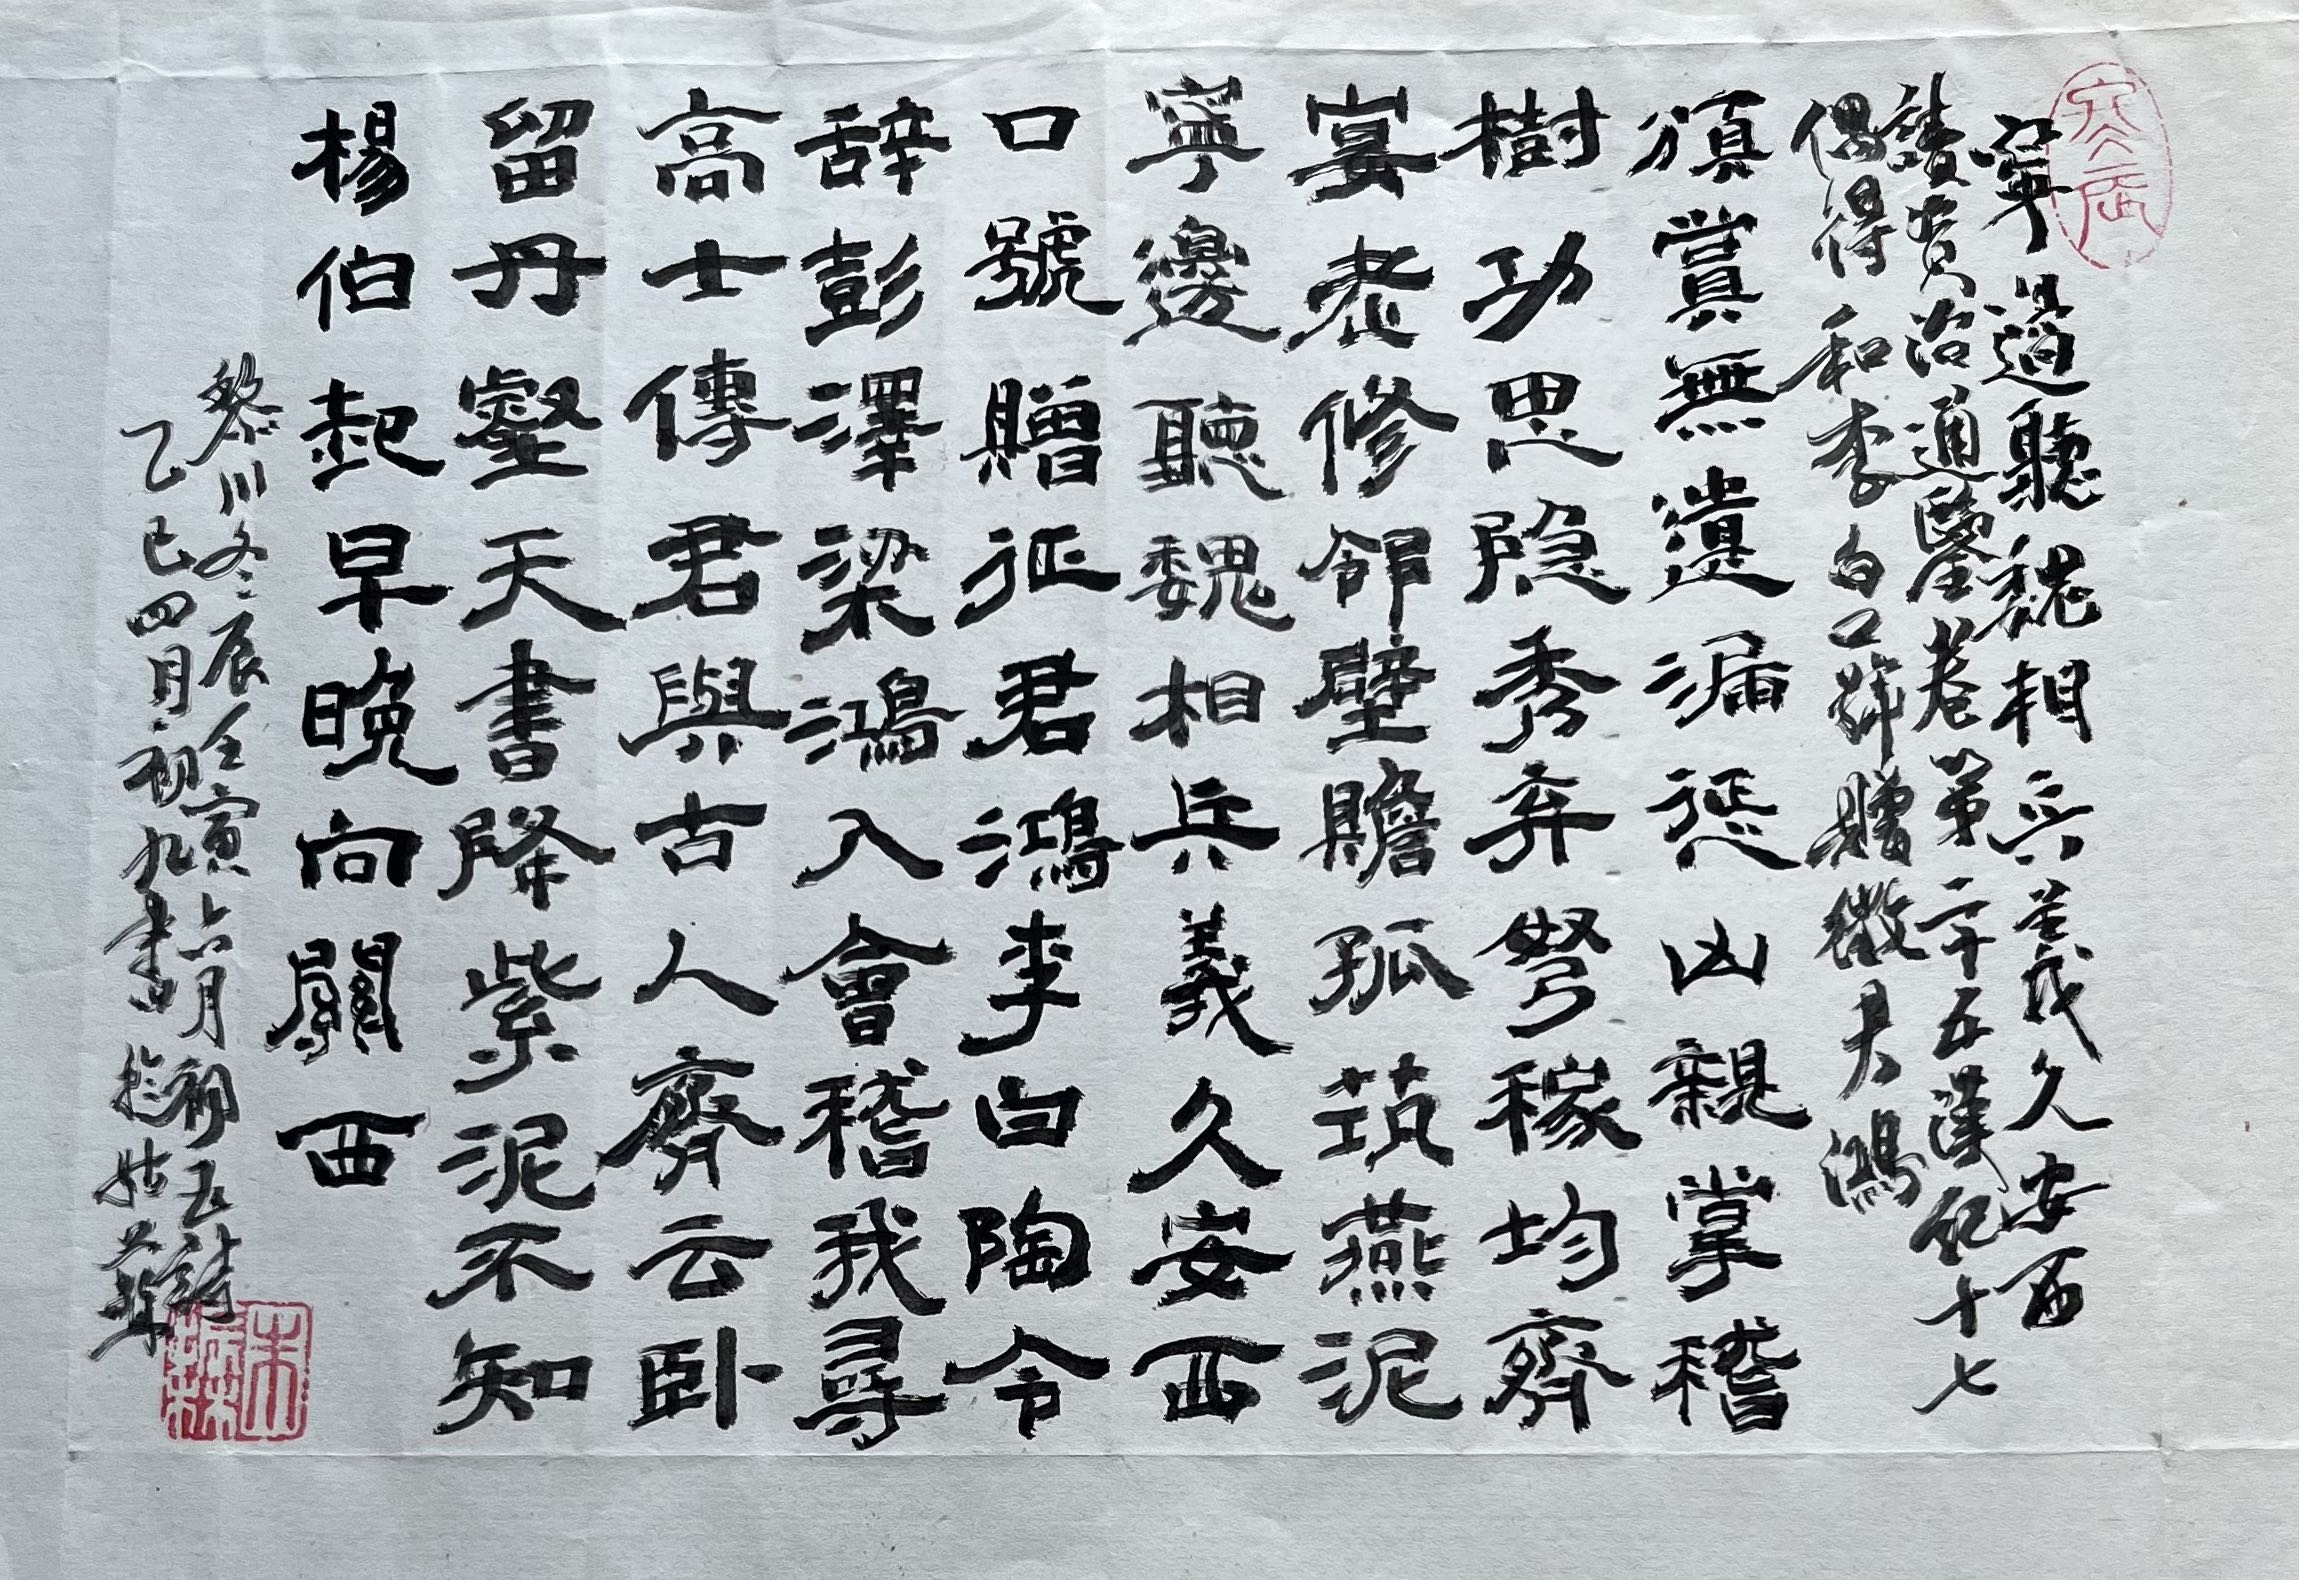 寧邊聽魏相兵義久安西
讀資治通鑒卷第二十五漢紀十七
偶得和李白口號贈徵君鴻
頒賞無遺漏懲凶親掌稽
樹功思隐秀弃弩稼均齊
宴耄修邻壁贍孤筑燕泥
寧邊聽魏相兵義久安西
口號贈征君鴻李白陶令
辞彭澤梁鴻入會稽我尋
高士傳君與古人齊云卧
留丹壑天書降紫泥不知
楊伯起早晚向關西
黎川冬辰壬寅六月初五詩
乙巳四月初九書於姑蘇